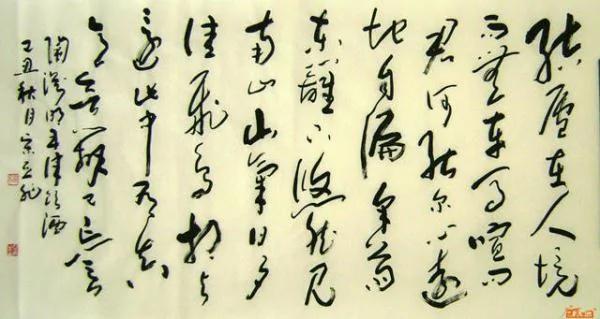 结廬在人境
而無车马喧问
君何能尔心遠
地自偏采菊
东籬下悠然见
南山山氣日夕
佳飛鸟相与
還此中有真
意欲辨已忘言
陶渊明五律饮酒
己丑秋月